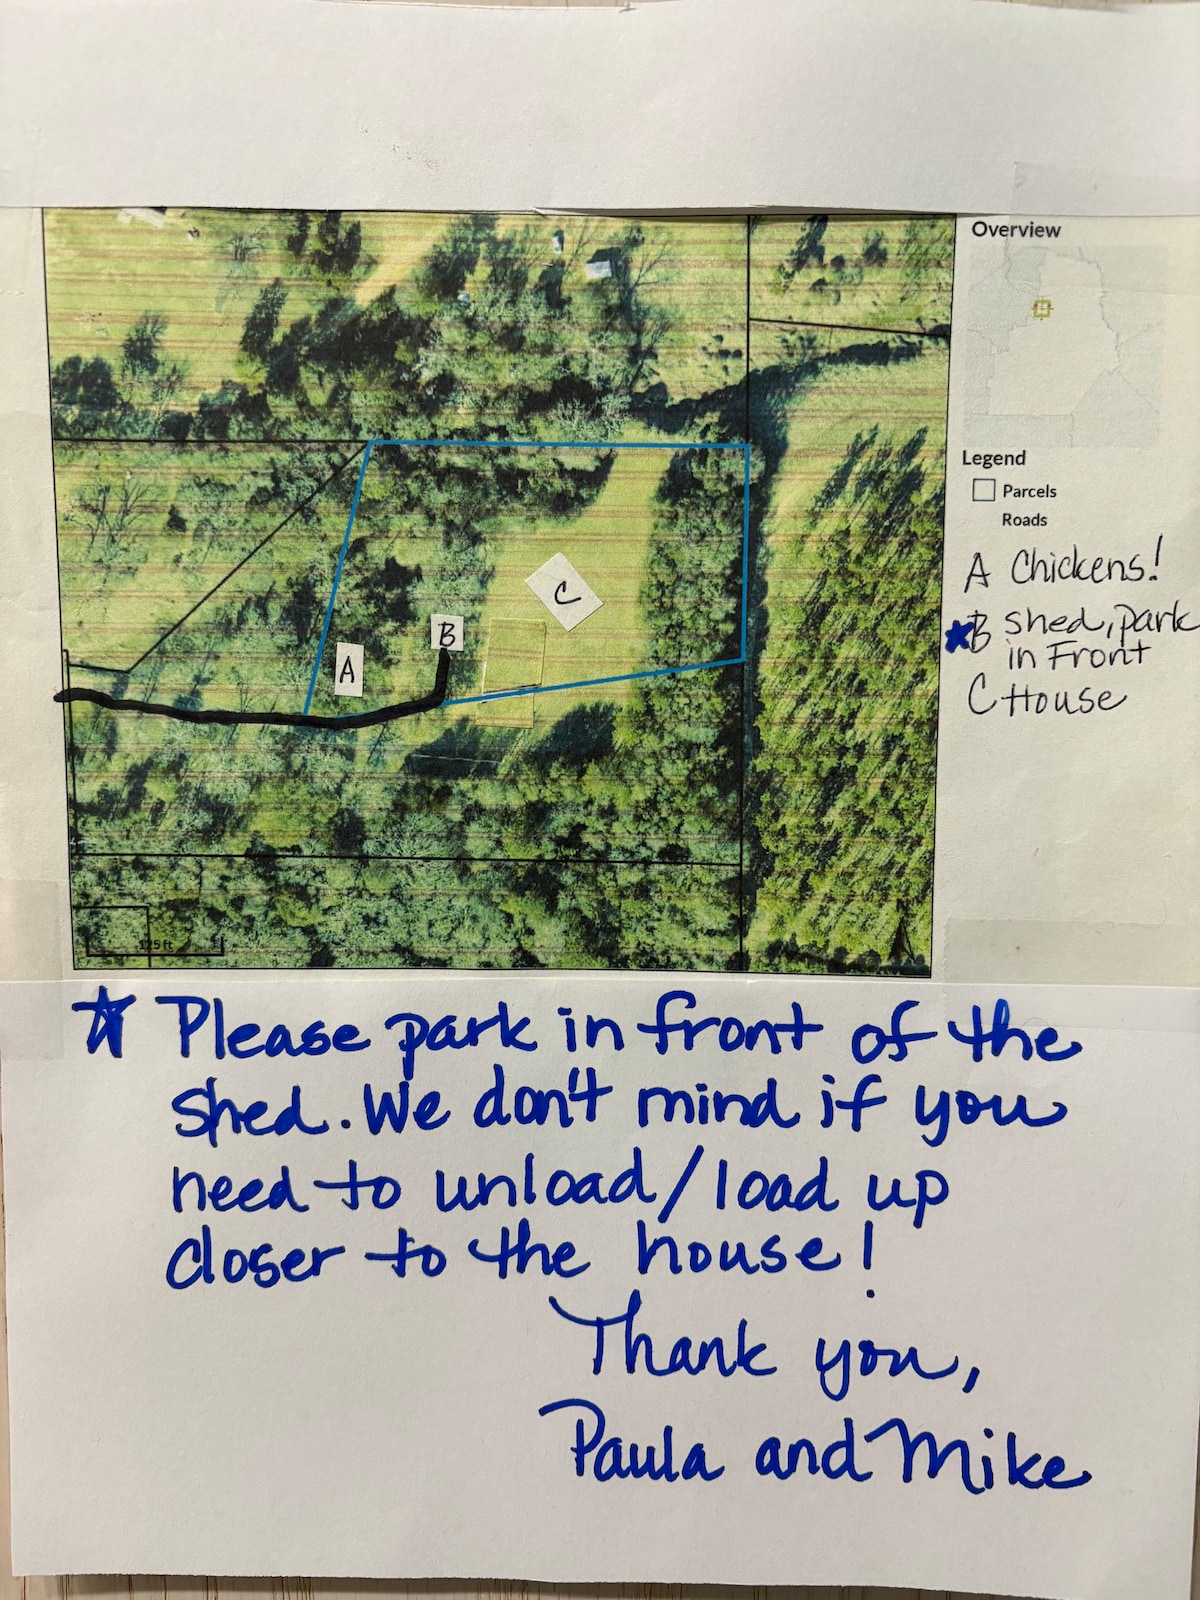 Overview
Legend
Parcels
Roads
A Chickens!
B shed, park
in Front
C House
A
B
C
125 ft
N
Please park in front of the
shed. We don't mind if you
need to unload/load up
closer to the house!
Thank you,
Paula and Mike